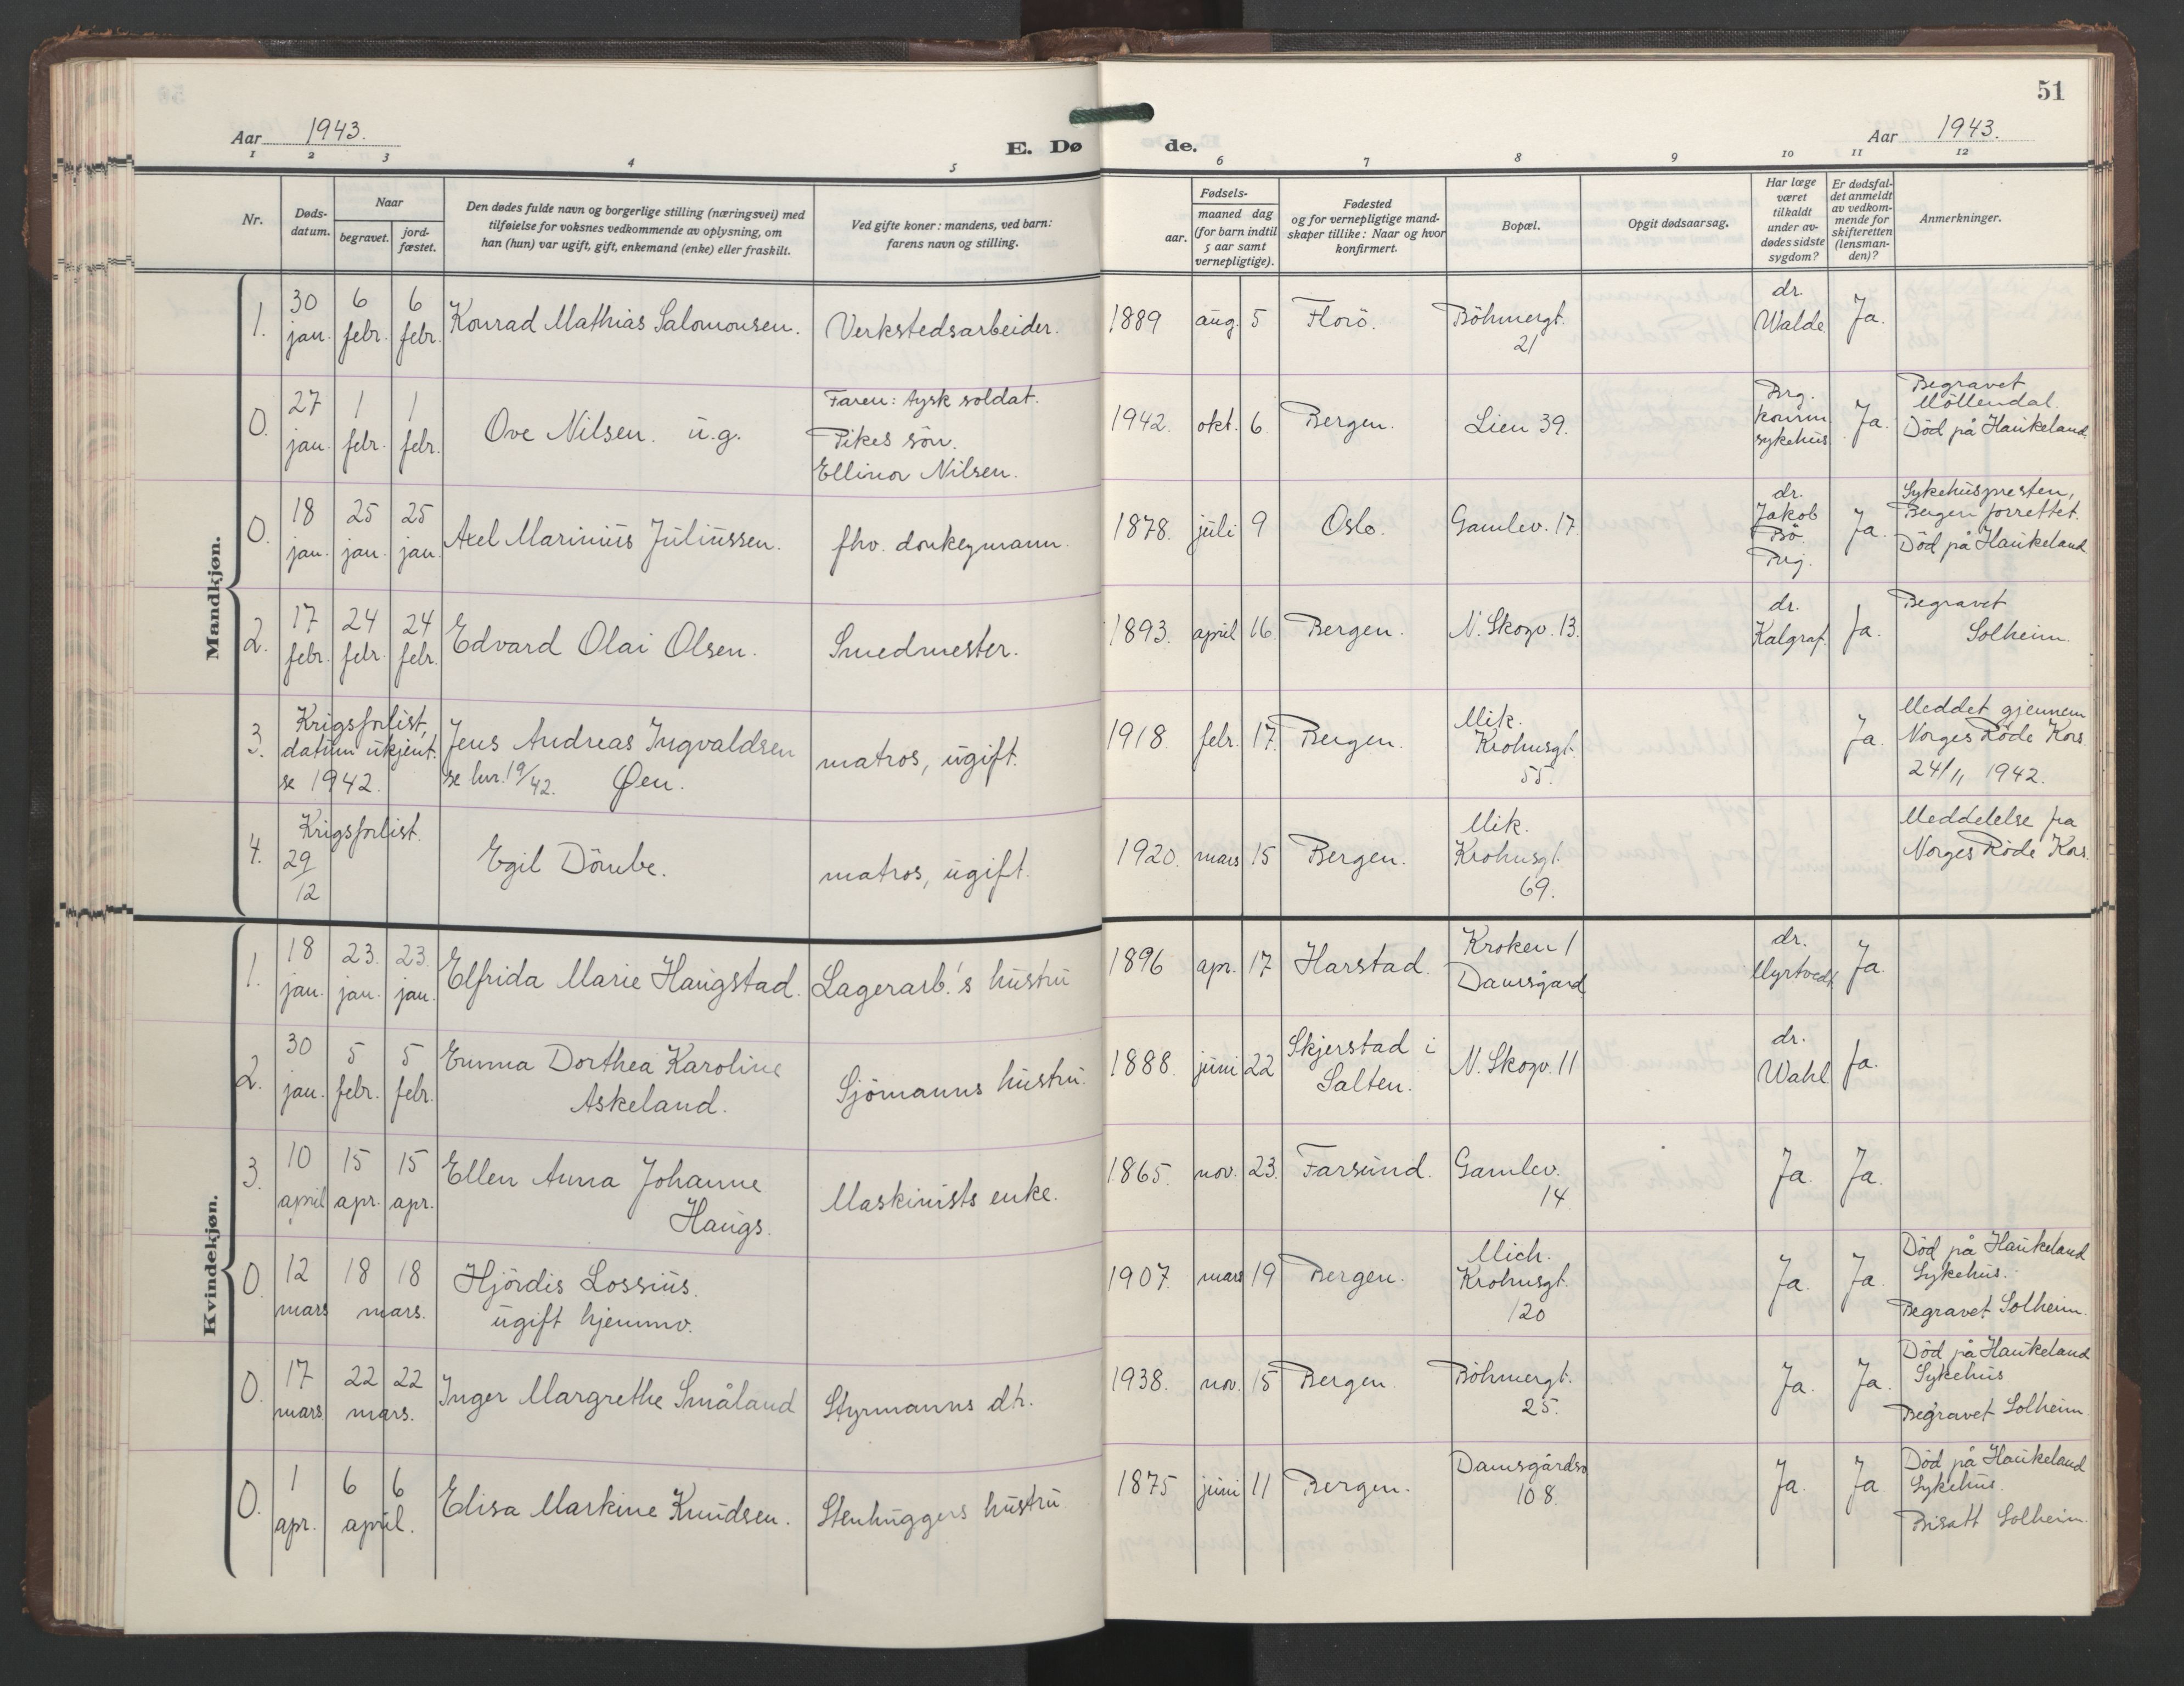 51
Aar 1943.
E. Dø de.
Aar 1943.
1 2 3 4 5 6 7 8 9 10 11 12
Nr.
Døds-
datum.
Naar
begravet.
jord-
fæstet.
Den dødes fulde navn og borgerlige stilling (næringsvei) med
tilføielse for voksnes vedkommende av oplysning, om
han (hun) var ugift, gift, enkemand (enke) eller fraskilt.
Ved gifte koner: mandens, ved barn:
farens navn og stilling.
Fødsels-
aar.
maaned dag
(for barn indtil
5 aar samt
vernepligtige).
Fødested
og for vernepligtige mand-
skaper tillike: Naar og hvor
konfirmert.
Bopæl.
Opgit dødsaarsag.
Har læge
været
tilkaldt
under av-
dødes sidste
sygdom?
Er dødsfal-
det anmeldt
av vedkom-
mende for
skifteretten
(lensman-
den)?
Anmerkninger.
Mandkjøn.
1. 30 jan. 6 febr. 6 febr. Konrad Mathias Salomonsen. Verkstedsarbeider. 1889 aug. 5 Florö. Böhmergt. 21 dr. Walde Ja.
0. 27 jan. 1 febr. 1 febr. Ove Nilsen. u.g. Faren: tysk soldat. Pikes sön. Ellinor Nilsen. 1942. okt. 6. Bergen. Lien 39. Brg. komm. sykehus Ja. Begravet Möllendal. Död på Haukeland.
0. 18 jan. 25 jan. 25 jan. Axel Marinius Juliussen. fhv. donkeymann. 1878. juli 9 Oslo. Gamlev. 17. dr. Jakob Bö. Ja. Sykehuspresten, Bergen forrettet. Död på Haukeland
2. 17 febr. 24 febr. 24 febr. Edvard Olai Olsen. Smedmester. 1893. april 16. Bergen. N. Skogv. 13. dr. Kalgraf. Ja. Begravet Solheim.
3. Krigsforlist, datum ukjent. se 1942. Jens Andreas Ingvaldsen Øen. se lnr. 19/42. matros, ugift. 1918. febr. 17. Bergen. Mik. Krohnsgt. 55. Ja. Meddet gjennem Norges Röde Kors 24/11 1942.
4. Krigsforlist. 29/12 Egil Dömbe. matros, ugift. 1920. mars 15 Bergen. Mik. Krohnsgt. 69. Meddelelse fra Norges Röde Kors.
Kvindekjøn.
1. 18 jan. 23. jan. 23. jan. Elfrida Marie Haugstad. Lagerarb.'s hustru 1896 apr. 17 Harstad. Kroken 1 Damsgård dr. Myrtvedt. Ja.
2. 30 jan. 5 febr. 5 febr. Emma Dorthea Karoline Askeland. Sjömanns hustru. 1888. juni 22 Skjerstad i Salten. N. Skogv. 11 dr. Wahl Ja.
3. 10 april 15 apr. 15 apr. Ellen Anna Johanne Haugs. Maskinists enke. 1865. nov. 23. Farsund. Gamlev. 14 Ja. Ja.
0. 12 mars 18 18 mars. Hjördis Lossius. ugift hjemmv. 1907. mars 19 Bergen. Mich. Krohnsgt. 120 Ja. Ja. Död på Haukeland Sykehus. Begravet Solheim.
0. 17 mars. 22 22 mars. Inger Margrethe Småland Styrmanns dtr. 1938. nov. 15 Bergen Böhmergt. 25. Ja. Ja. Död på Haukeland Sykehus Begravet Solheim
0. 1 apr. 6 6 april. Elisa Markine Knudsen. Stenhuggers hustru 1875 juni 11 Bergen. Damsgårdsv 108. Ja. Ja Död på Haukeland Sykehus. Bisatt Solheim.